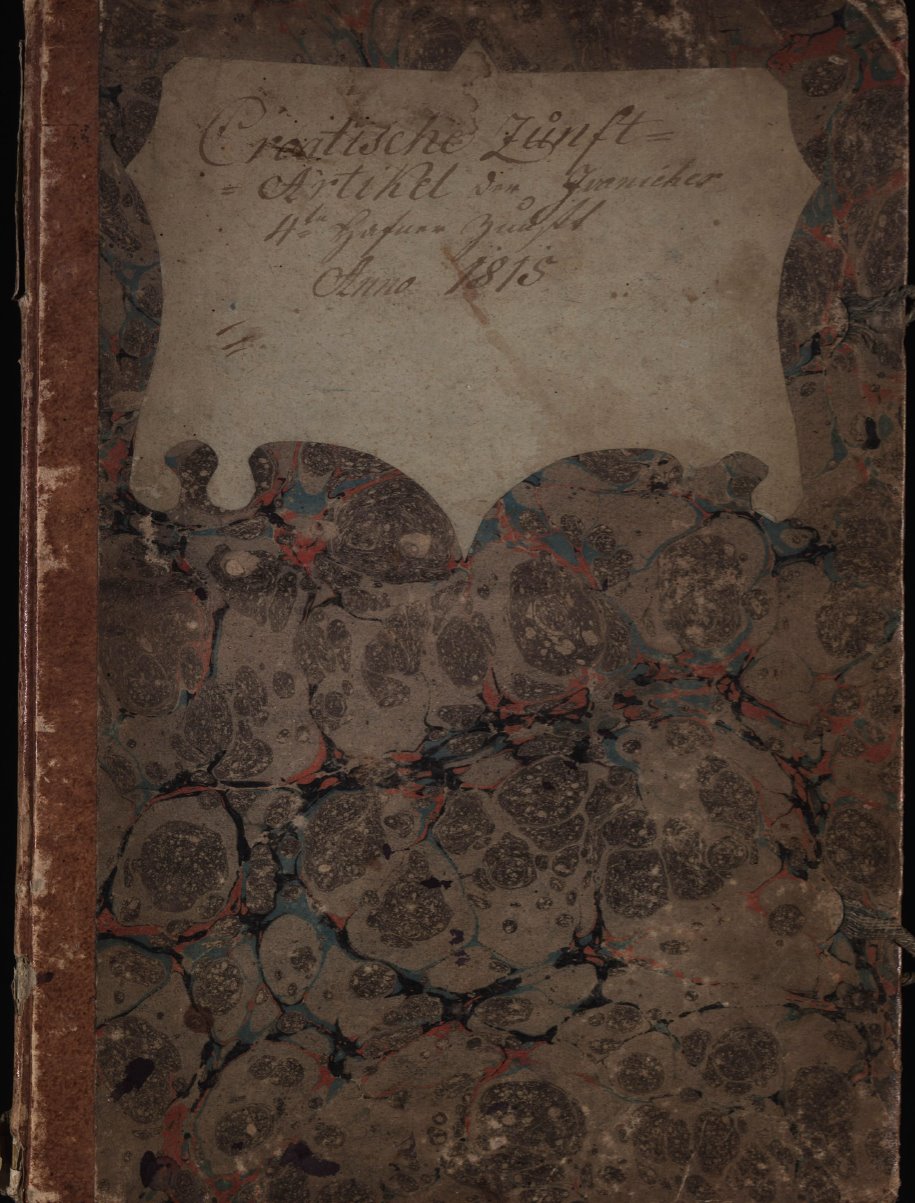 Croatische Zůnft=
=Artikel der
4ten Hafner Zunft
Anno 1815